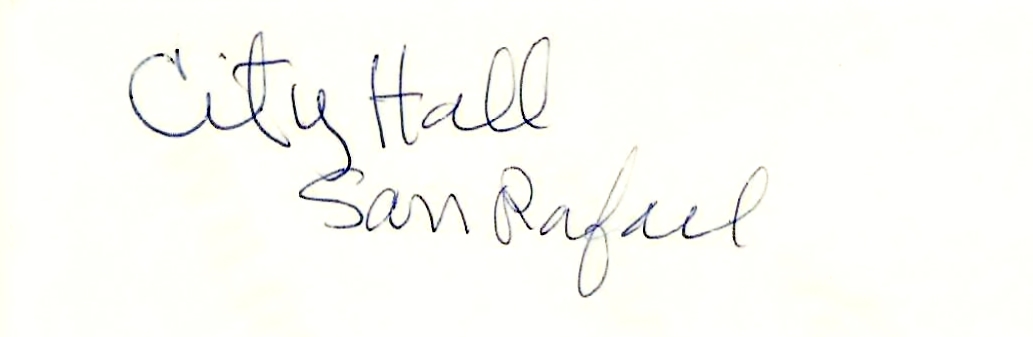 City Hall
San Rafael